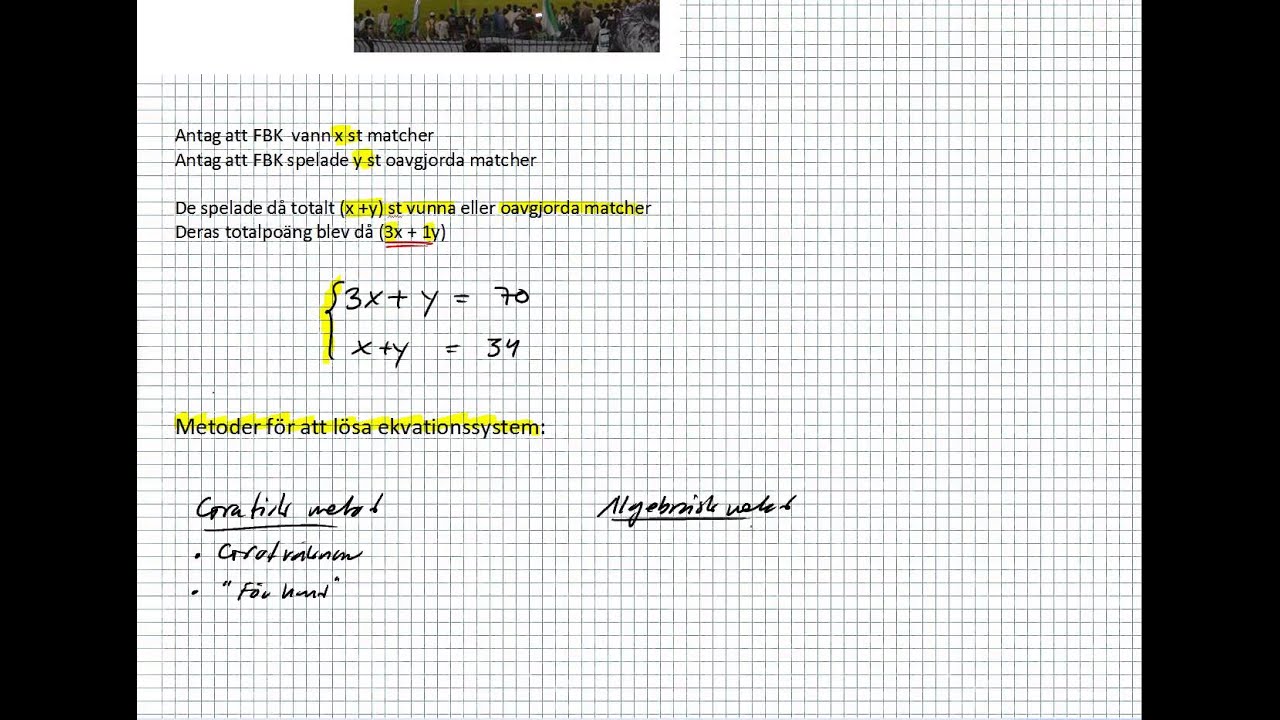 Antag att FBK vann x st matcher
Antag att FBK spelade y st oavgjorda matcher
De spelade då totalt (x +y) st vunna eller oavgjorda matcher
Deras totalpoäng blev då (3x + 1y)
3x + y = 70
x + y = 34
Metoder för att lösa ekvationssystem:
Grafisk metod
Algebraisk metod
• Grafräknare
• "För hand"